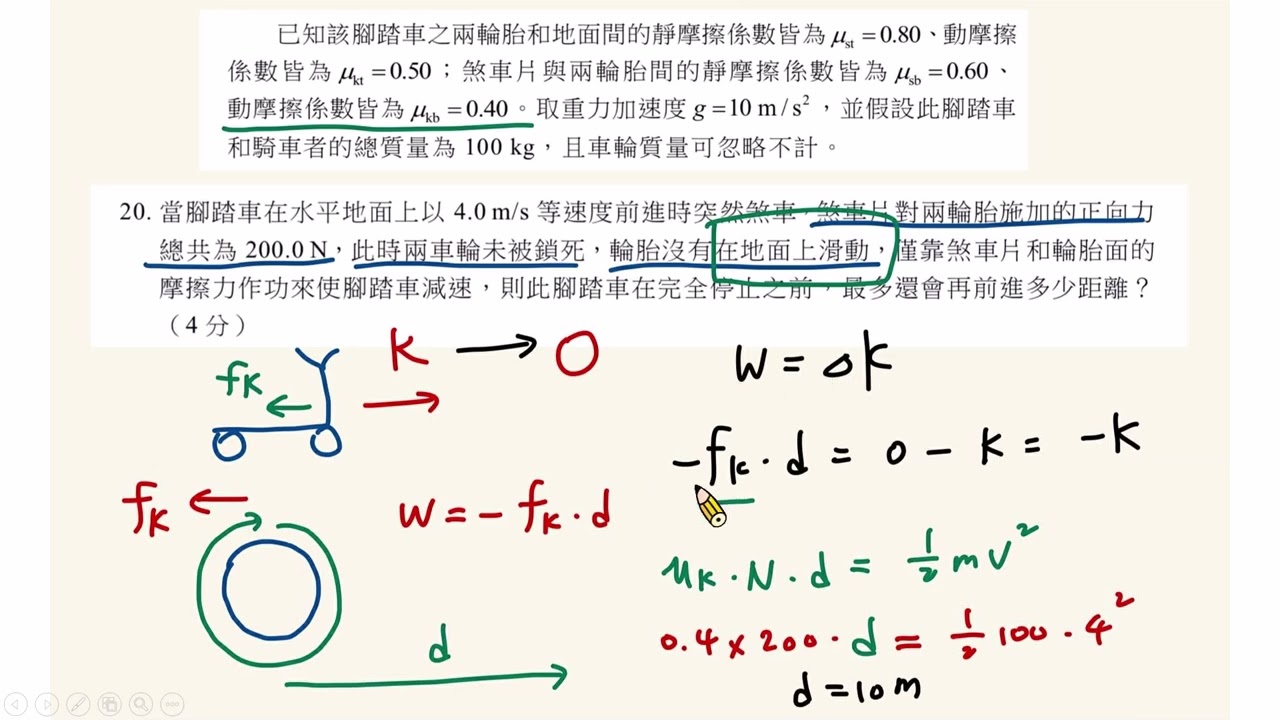 已知該腳踏車之兩輪胎和地面間的靜摩擦係數皆為 μst = 0.80、動摩擦
係數皆為 μkt = 0.50；煞車片與兩輪胎間的靜摩擦係數皆為 μsb = 0.60、
動摩擦係數皆為 μkb = 0.40。取重力加速度 g = 10 m/s²，並假設此腳踏車
和騎車者的總質量為 100 kg，且車輪質量可忽略不計。
20. 當腳踏車在水平地面上以 4.0 m/s 等速度前進時突然煞車，煞車片對兩輪胎施加的正向力
總共為 200.0 N，此時兩車輪未被鎖死，輪胎沒有在地面上滑動，僅靠煞車片和輪胎面的
摩擦力作功來使腳踏車減速，則此腳踏車在完全停止之前，最多還會再前進多少距離？
（4 分）
K → 0
fK
W = ΔK
-fK · d = 0 - K = -K
fK
W = - fK · d
μK · N · d = 1/2 mV²
0.4 × 200 · d = 1/2 100 · 4²
d
d = 10 m